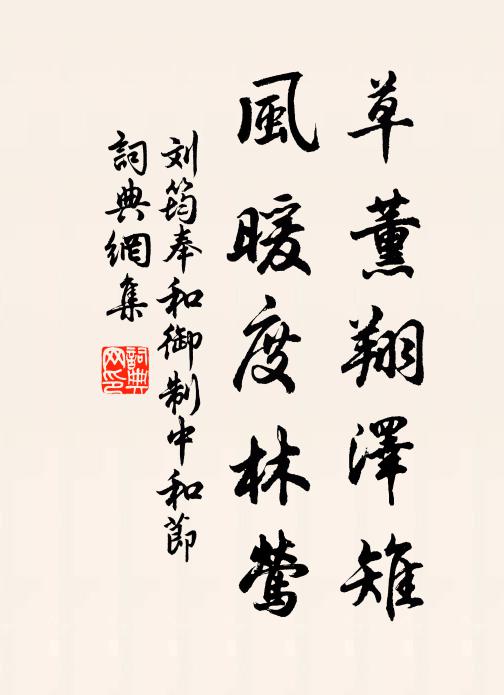 草薰翔澤雉
風暖度林鶯
刘筠奉和御制中和節
詞典網集
詞典
网印